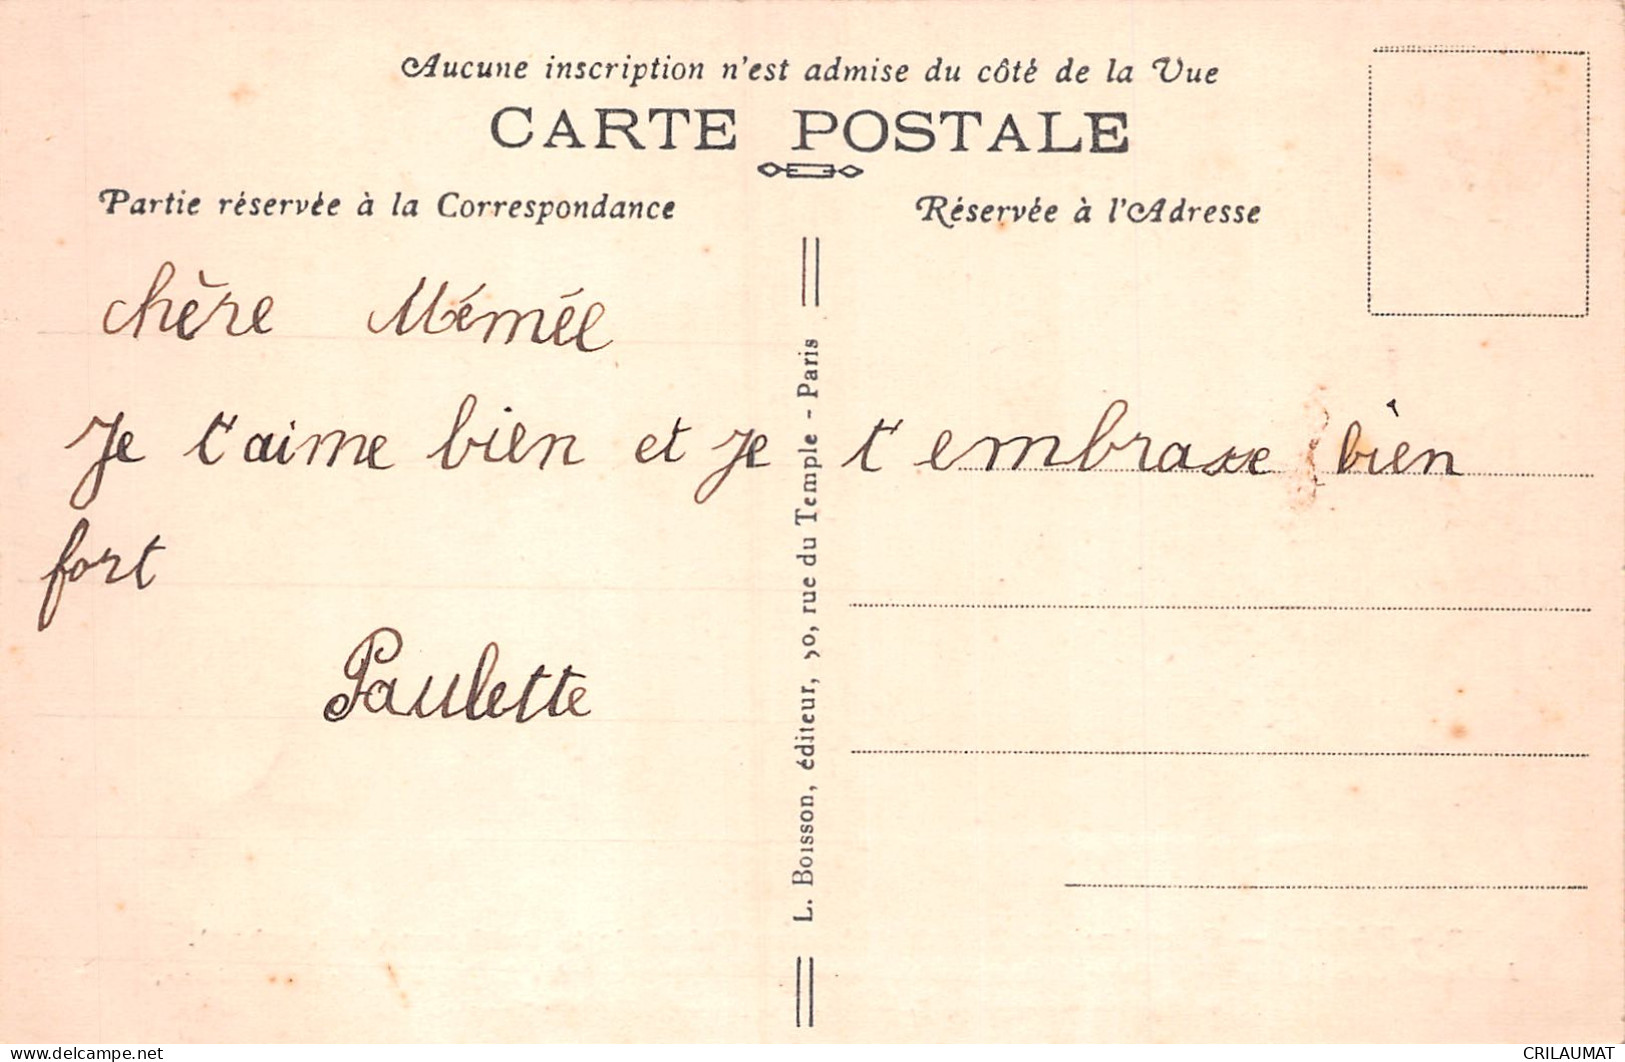 Aucune inscription n'est admise du côté de la Vue
CARTE POSTALE
Partie réservée à la Correspondance
Réservée à l'Adresse
chère Mémée
Je t'aime bien et je t'embrasse bien
fort
Paulette
L. Boisson, éditeur, 50, rue du Temple - Paris
delcampe.net
CRILAUMAT